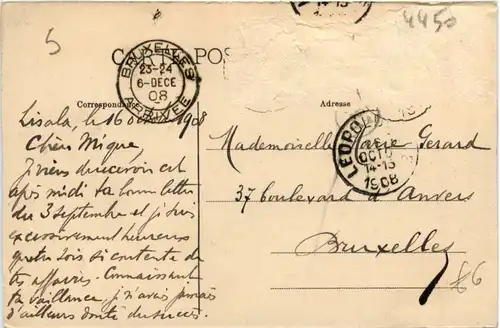 4450
5
CARTE POS
BRUXELLES
23-24
6-DECE
08
ARRIVEE
Correspondance
Adresse
LEOPO
OCTO
14-15
1908
Lisala, le 16 1908
Chère Mique,
Je viens de recevoir cet
après midi ta bonne lettre
du 3 septembre et je suis
excessivement heureux
que tu sois si contente de
tes affaires. Connaissant
ta vaillance, je n'avais jamais
d'ailleurs douté du succès.
Mademoiselle Marie Gerard
37 boulevard d'Anvers
Bruxelles
£6